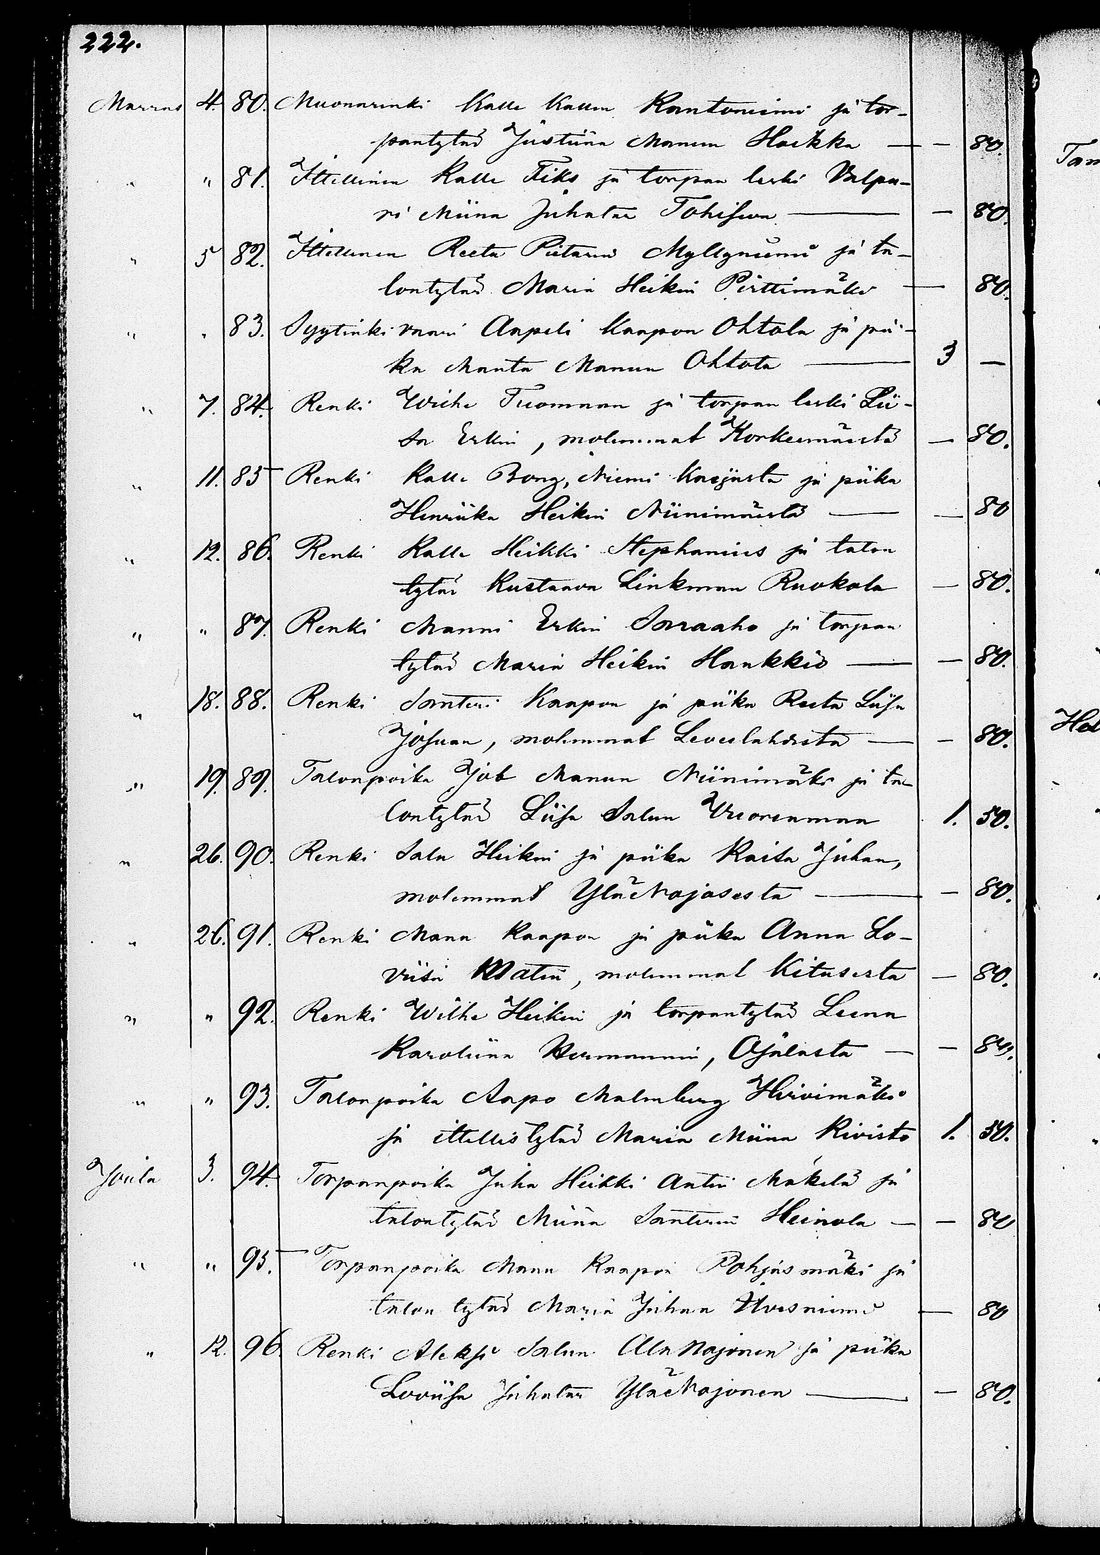 222.
Marras 4. 80. Muonarenki Kalle Kallen Rantoniemi ja tor-
pantytär Justiina Manun Haikka — — 80.
" " 81. Itellinen Kalle Fiks ja torpan leski Valpu-
ri Miina Juhatar — — 80.
" 5 82. Itellinen Reeta Myllyniemi ja ta-
lontytär Maria Heikin Pirttimäki — — 80.
" " 83. Syytinki vaari Aapeli Kaapon Ohtola ja pii-
ka Manta Manun Ohtola — 3 —
" 7. 84. Renki Wilhe Tuomaan ja torpan leski Lii-
sa Erkin, molemmat Korkeemäestä — 80.
" 11. 85 Renki Kalle Bong, Niemi ja piika
Henriika Heikin Niinimäestä — — 80
" 12. 86. Renki Kalle Heikki Stephanius ja talon
tytär Kustaava Linkman Ruokola — 80.
" " 87. Renki Manni Erkin Saraaho ja torpan
tytär Maria Heikin Hankkio — — 80.
" 18. 88. Renki Santeri Kaapon ja piika Reeta Liisa
Josuan, molemmat Leveelahdesta — — 80.
" 19. 89. Talonpoika Job Manun Niinimäki ja ta-
lontytär Liisa Salun Vuorenmaa 1. 50.
" 26. 90. Renki Salu Heikin ja piika Kaisa Juhan,
molemmat YläNajosesta — — 80.
" 26. 91. Renki Manu Kaapon ja piika Anna Lo-
viisa Matin, molemmat Kitusesta — 80.
" " 92. Renki Wilhe Heikin ja torpantytär Leena
Karoliina Hermannin, Ojalasta — — 80.
" " 93. Talonpoika Aapo Malmberg Hirvimäki
ja itellistytär Maria Miina Kivistö 1. 50.
Joulu 3. 94. Torpanpoika Juha Heikki Antin Mäkelä ja
talontytär Miina Santerin Heinola — — 80
" " 95. Torpanpoika Manu Kaapon Pohjasmäki ja
talon tytär Maria Juhan — 80
" 12. 96. Renki Aleksi Salun Ala Najonen ja piika
Loviisa Juhatar YläNajonen — — 80.
Tam
Hel